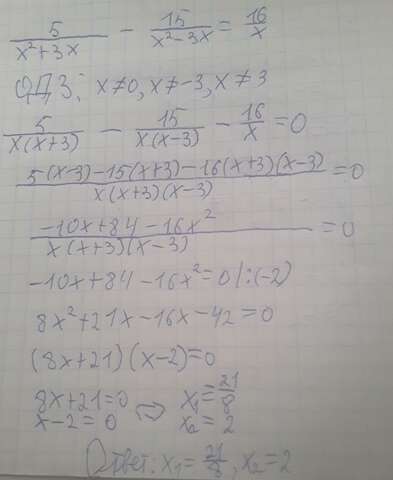 5/(x²+3x) - 15/(x²-3x) = 16/x
ОДЗ: x≠0, x≠-3, x≠3
5/(x(x+3)) - 15/(x(x-3)) - 16/x = 0
(5(x-3)-15(x+3)-16(x+3)(x-3))/(x(x+3)(x-3)) = 0
(-10x+84-16x²)/(x(x+3)(x-3)) = 0
-10x+84-16x²=0 |:(-2)
8x²+21x-16x-42=0
(8x+21)(x-2)=0
8x+21=0 => x₁=21/8
x-2=0 x₂=2
Ответ: x₁=21/8, x₂=2